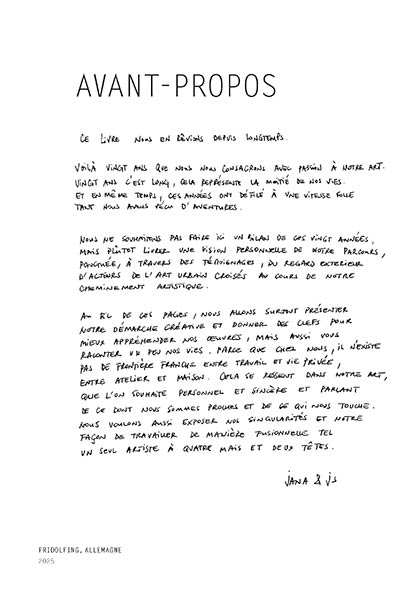 AVANT-PROPOS
CE LIVRE NOUS EN RÊVIONS DEPUIS LONGTEMPS.
VOILÀ VINGT ANS QUE NOUS NOUS CONSACRONS AVEC PASSION À NOTRE ART.
VINGT ANS C'EST LONG, CELA REPRÉSENTE LA MOITIÉ DE NOS VIES.
ET EN MÊME TEMPS, CES ANNÉES ONT DÉFILÉ À UNE VITESSE FOLLE
TANT NOUS AVONS VÉCU D'AVENTURES.
NOUS NE SOUHAITONS PAS FAIRE ICI UN BILAN DE CES VINGT ANNÉES,
MAIS PLUTÔT LIVRER UNE VISION PERSONNELLE DE NOTRE PARCOURS,
PONCTUÉE, À TRAVERS DES TÉMOIGNAGES, DU REGARD EXTERIEUR
D'ACTEURS DE L'ART URBAIN CROISÉS AU COURS DE NOTRE
CHEMINEMENT ARTISTIQUE.
AU FIL DE CES PAGES, NOUS ALLONS SURTOUT PRÉSENTER
NOTRE DÉMARCHE CRÉATIVE ET DONNER DES CLEFS POUR
MIEUX APPRÉHENDER NOS ŒUVRES, MAIS AUSSI VOUS
RACONTER UN PEU NOS VIES. PARCE QUE CHEZ NOUS, IL N'EXISTE
PAS DE FRONTIÈRE FRANCHE ENTRE TRAVAIL ET VIE PRIVÉE,
ENTRE ATELIER ET MAISON. CELA SE RESSENT DANS NOTRE ART,
QUE L'ON SOUHAITE PERSONNEL ET SINCÈRE ET PARLANT
DE CE DONT NOUS SOMMES PROCHES ET DE CE QUI NOUS TOUCHE.
NOUS VOULONS AUSSI EXPOSER NOS SINGULARITÉS ET NOTRE
FAÇON DE TRAVAILLER DE MANIÈRE FUSIONNELLE TEL
UN SEUL ARTISTE À QUATRE MAINS ET DEUX TÊTES.
JANA & JS
FRIDOLFING, ALLEMAGNE
2025